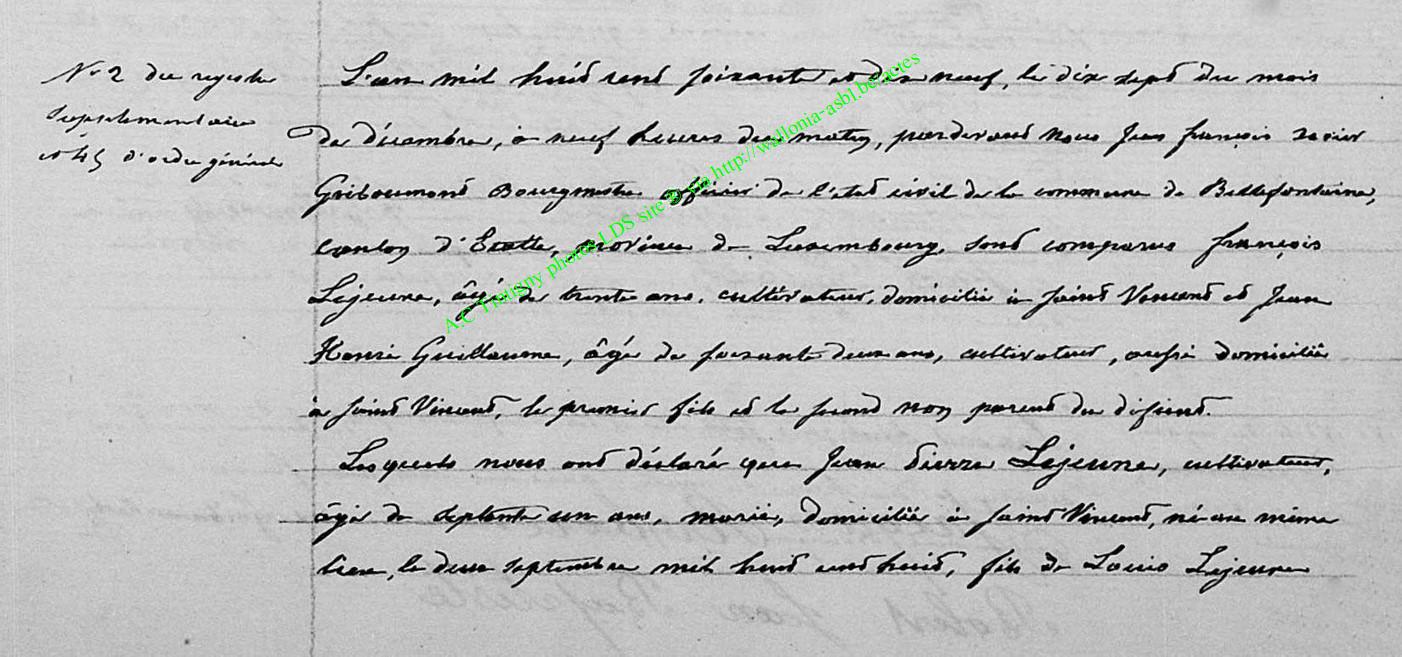 No 2 du registre
supplémentaire
et 45 d'ordre général
L'an mil huit cent soixante et dix neuf, le dix sept du mois
de décembre, à neuf heures du matin, pardevant nous Jean françois xavier
Griboumont Bourgmestre officier de l'état civil de la commune de Bellefontaine,
canton d'Etalle, province de Luxembourg, sont comparus françois
Lejeune, âgé de trente ans, cultivateur, domicilié à saint Vincent et Jean
Henri Guillaume, âgé de soixante deux ans, cultivateur, aussi domicilié
à saint Vincent, le premier fils et le second non parent du défunt.
Lesquels nous ont déclaré que Jean Pierre Lejeune, cultivateur,
âgé de septante un ans, marié, domicilié à saint Vincent, né au même
lieu, le deux septembre mil huit cent huit, fils de Louis Lejeune
A.C Tintigny photos LDS site via http://wallonia-asbl.be/actes